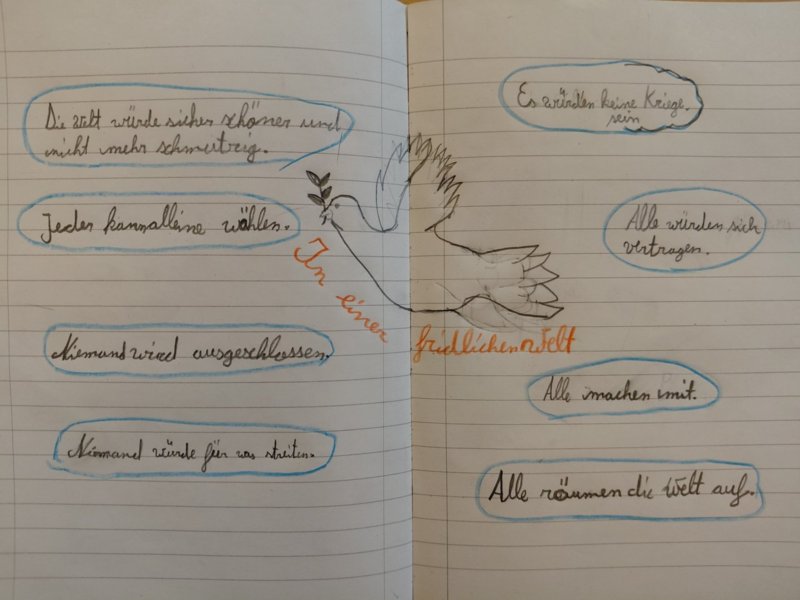 Die Welt würde sicher schöner und
nicht mehr schmutzig.
Jeder kann alleine wählen.
Niemand wird ausgeschlossen.
Niemand würde für was streiten.
In einer fridlichen welt
Es würden keine Kriege
sein
Alle würden sich
vertragen.
Alle machen mit.
Alle räumen die Welt auf.